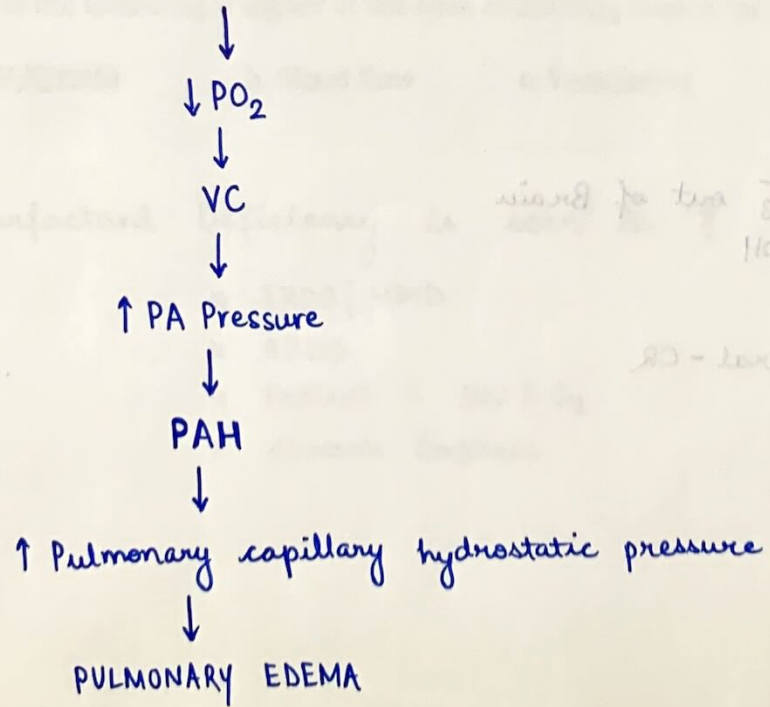 ↓
↓ PO₂
↓
VC
↓
↑ PA Pressure
↓
PAH
↓
↑ Pulmonary capillary hydrostatic pressure
↓
PULMONARY EDEMA